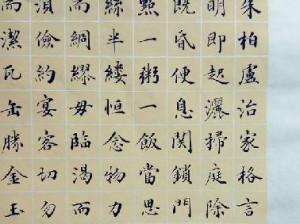 朱柏盧治家格言
明即起灑掃庭除
既昏便息關鎖門
點一粥一飯當思
絲半縷恒念物力
而綢繆毋臨渴而
須儉約宴客切勿
而潔瓦缶勝金玉